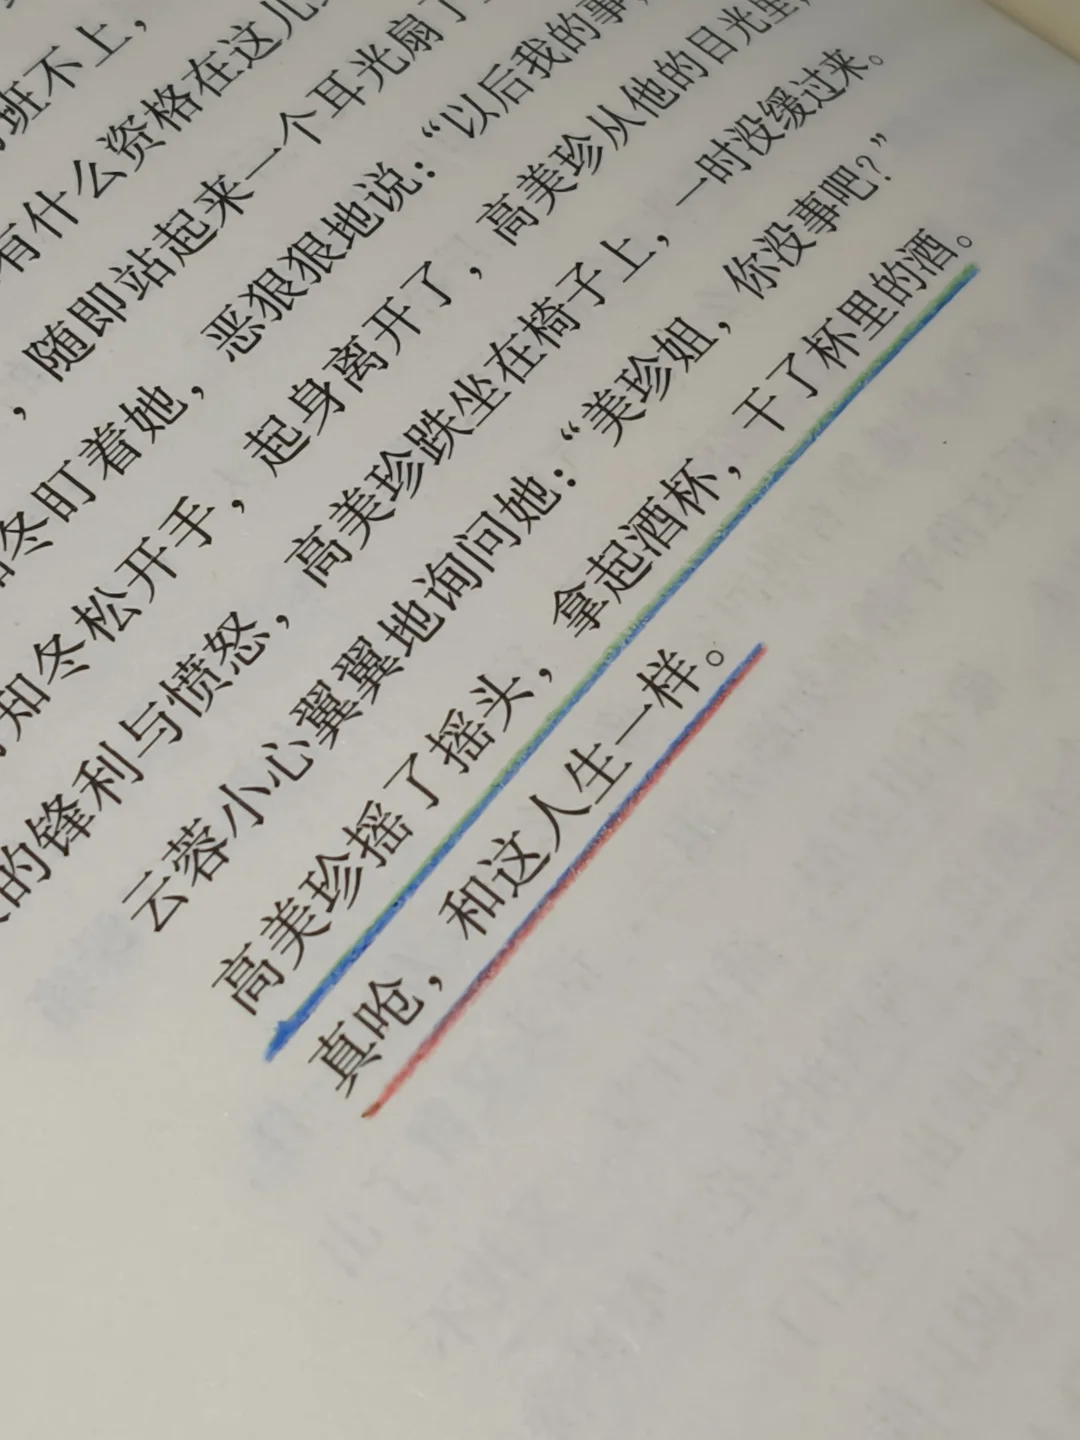 班不上，
有什么资格在这儿
，随即站起来一个耳光扇了
冬盯着她，恶狠狠地说：“以后我的事，
知冬松开手，起身离开了，高美珍从他的目光里，
的锋利与愤怒，高美珍跌坐在椅子上，一时没缓过来。
云蓉小心翼翼地询问她：“美珍姐，你没事吧？”
高美珍摇了摇头，拿起酒杯，干了杯里的酒。
真呛，和这人生一样。